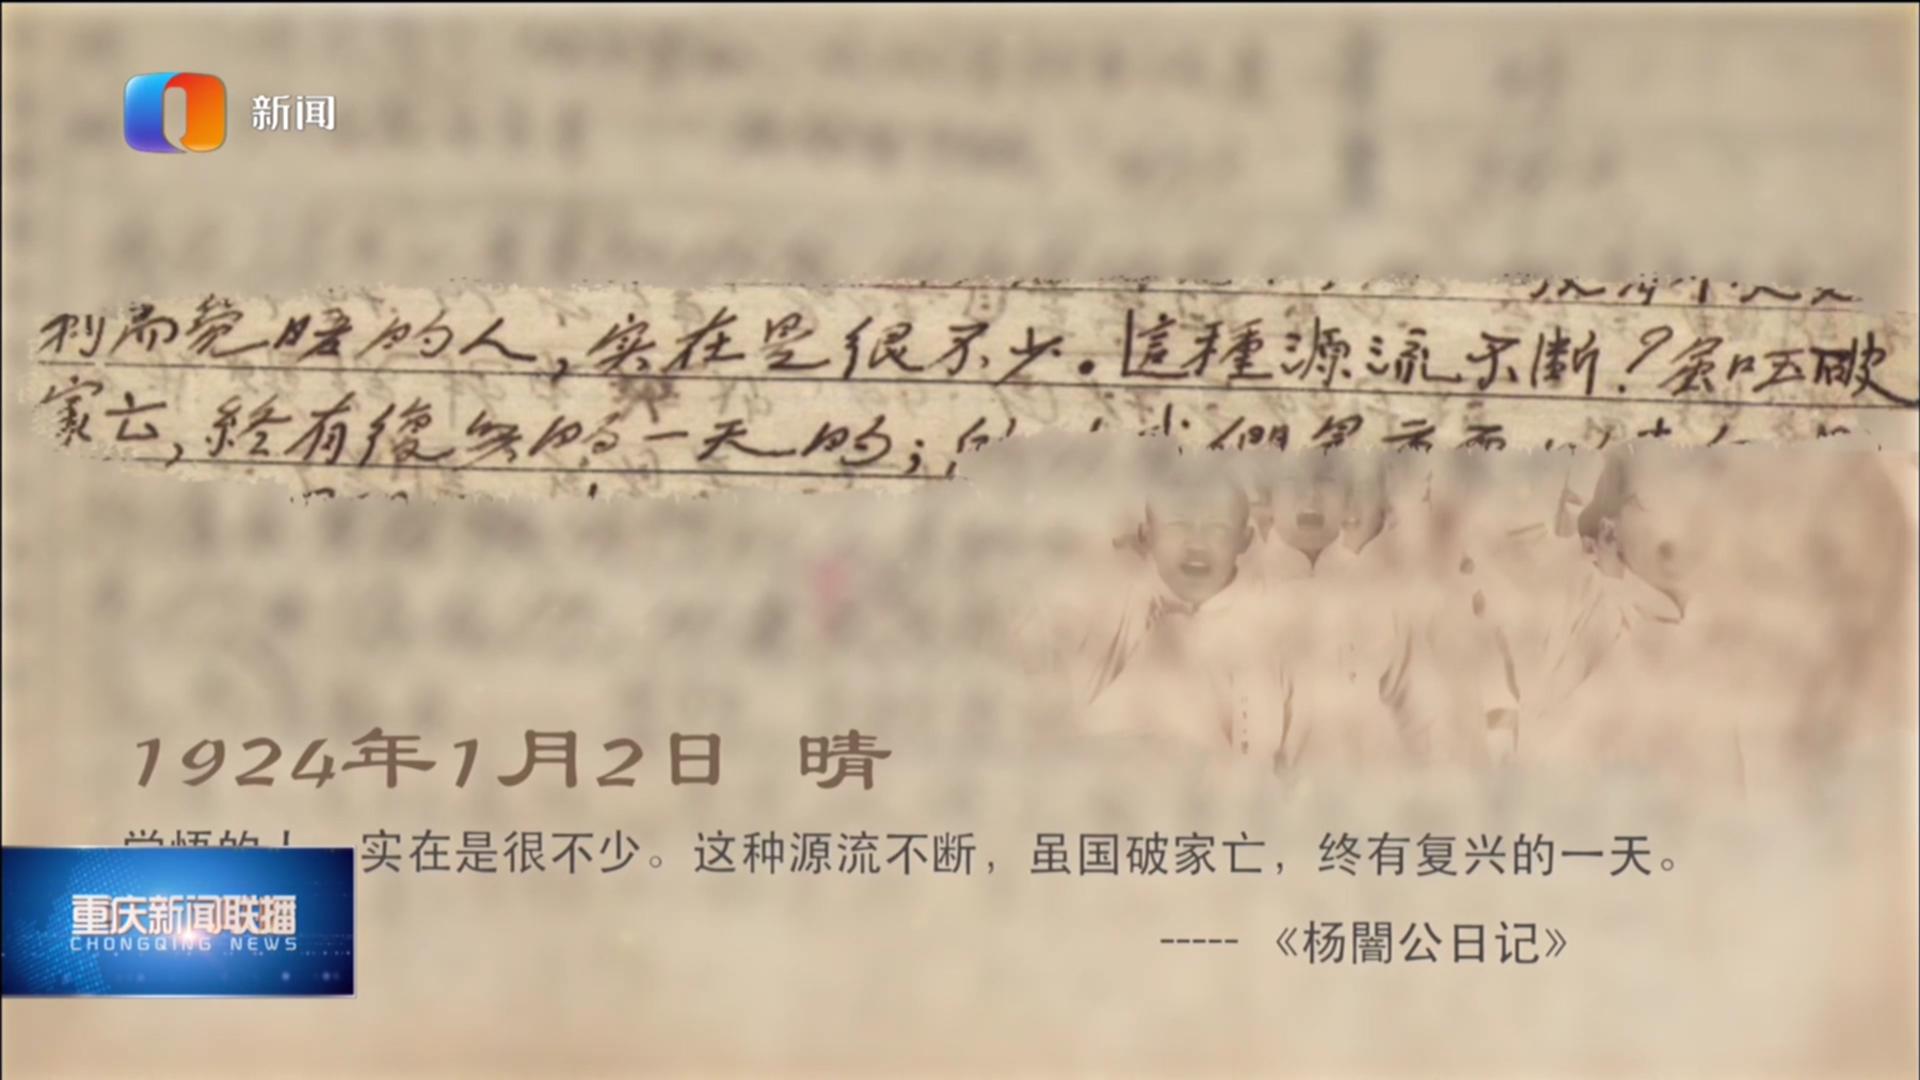 新闻
利而觉悟的人，实在是很不少。這種源流不断？虽国破
家亡，終有復兴的一天的；
1924年1月2日 晴
觉悟的人，实在是很不少。这种源流不断，虽国破家亡，终有复兴的一天。
----- 《杨闇公日记》
重庆新闻联播
CHONGQING NEWS